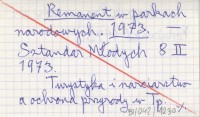 Remanent w parkach
narodowych. 1973. —
Sztandar Młodych 8 II
1973.
Turystyka i narciarstwo
a ochrona przyrody w Tp.